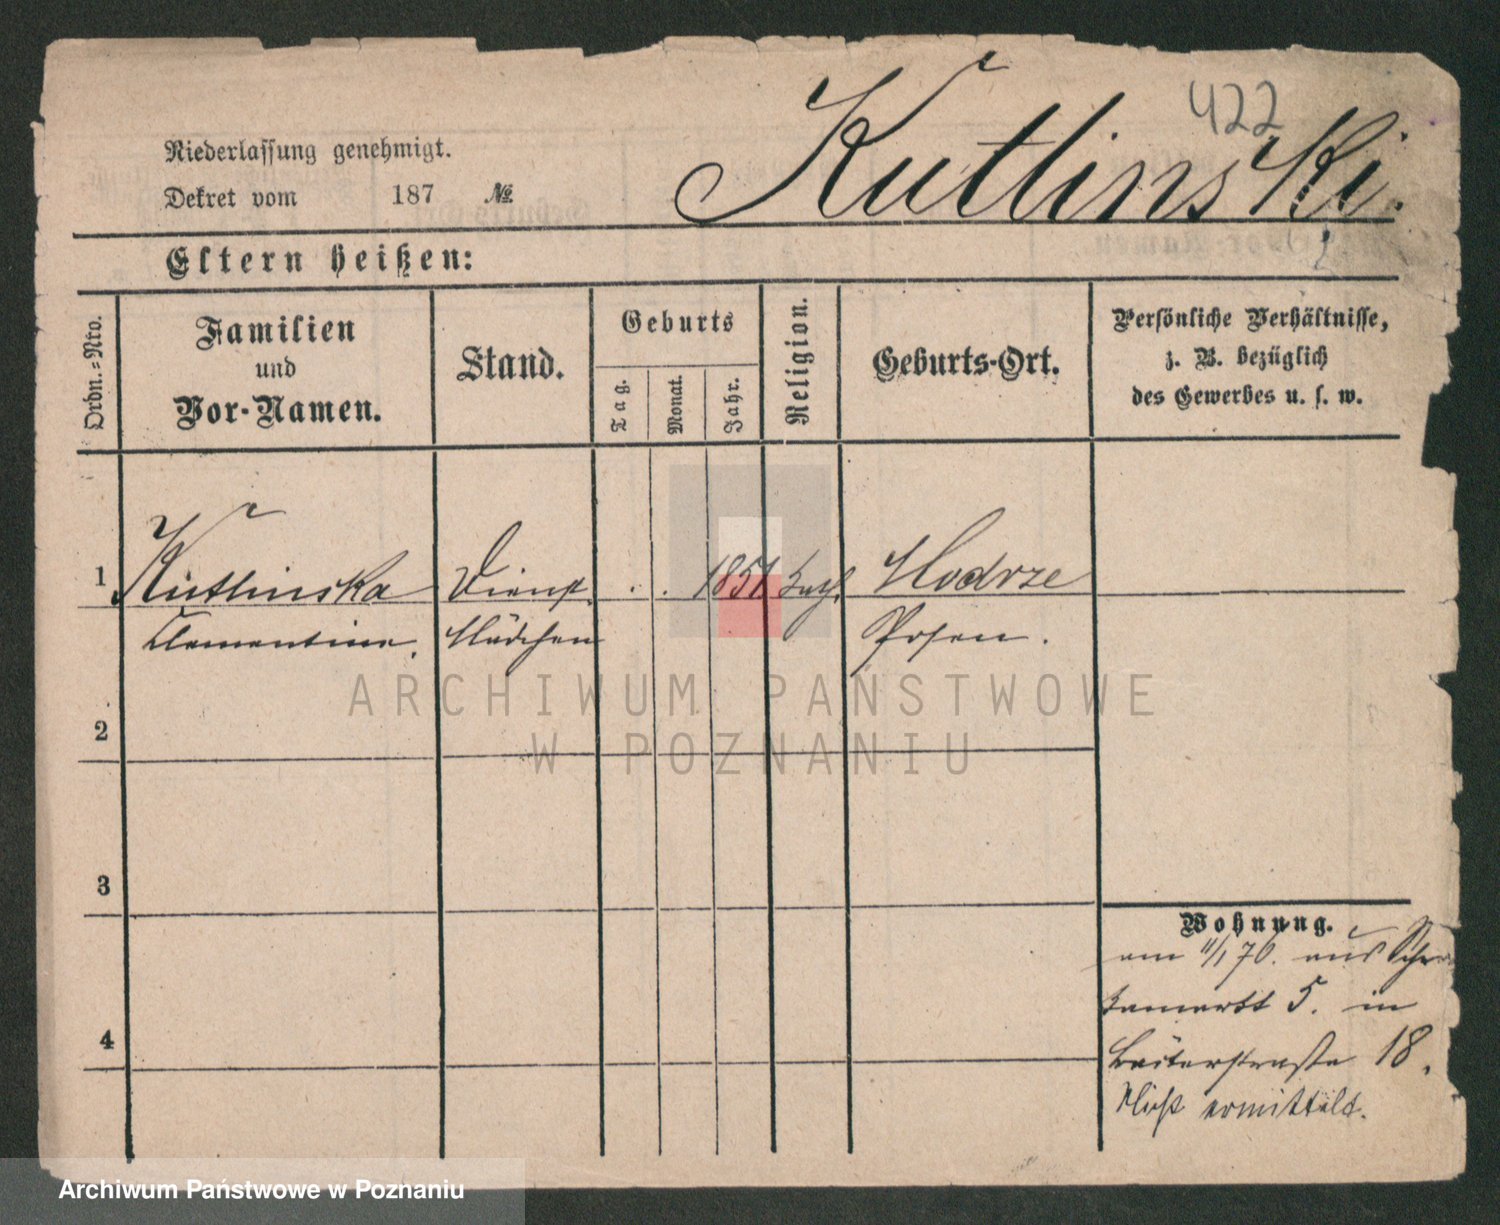 422
Kutlinski.
Niederlassung genehmigt.
Dekret vom 187 №
Eltern heißen:
Ordn.-Nro.
Familien
und
Vor-Namen.
Stand.
Geburts
Tag.
Monat.
Jahr.
Religion.
Geburts-Ort.
Persönliche Verhältnisse,
z. B. bezüglich
des Gewerbes u. s. w.
1 Kutlinska Dienst . . 1851 kath. Modrze
Clementine. Mädchen Posen.
2
3
4
Wohnung.
am 11/1 76. aus
5. in
18.
Nicht ermittelt.
ARCHIWUM PAŃSTWOWE
W POZNANIU
Archiwum Państwowe w Poznaniu